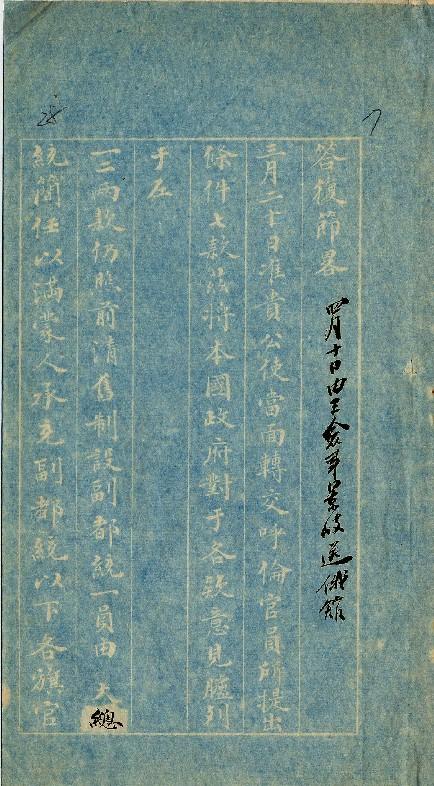 答復節畧
四月十日由王僉事景岐送俄館
三月二十日准貴公使當面轉交呼倫官員所提出
條件七款茲將本國政府對于各款意見臚列
于左
一二兩款仍照前清舊制設副都統一員由大總
統簡任以滿蒙人承充副都統以下各旗官